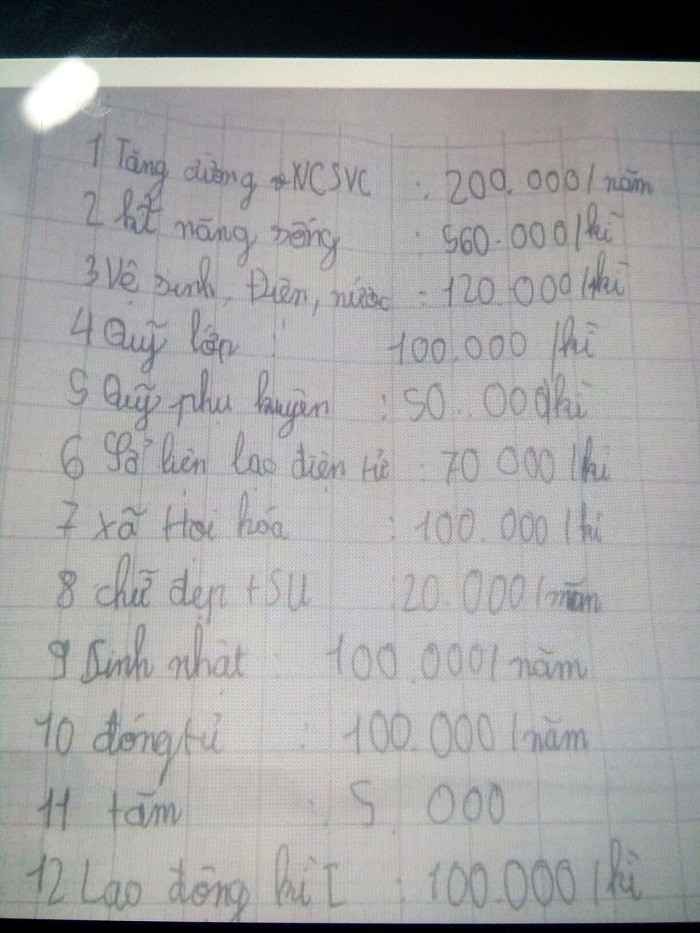 1 Tăng cường CSVC : 200.000/năm
2 kĩ năng sống : 560.000/kì
3 Vệ sinh, Điện, nước : 120.000/kì
4 Quỹ lớp : 100.000/kì
5 Quỹ phụ huynh : 50.000/kì
6 Sổ liên lạc điện tử : 70 000/kì
7 xã Hội hóa : 100.000/kì
8 chữ đẹp + SU : 20.000/năm
9 Sinh nhật : 100.000/năm
10 đóng tủ : 100.000/năm
11 tăm : 5.000
12 Lao động kì I : 100.000/kì